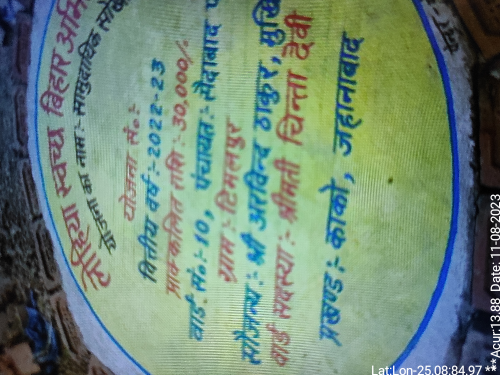 लोहिया स्वच्छ बिहार अभि
योजना का नाम:- सामुदायिक सोख
योजना सं०:-
वित्तीय वर्ष:-2022-23
प्राक्कलित राशि:-30,000/-
वार्ड सं०:-10, पंचायत:-सैदाबाद प
ग्राम:-टिमलपुर
सौजन्य:-श्री अरविन्द ठाकुर, मुखि
वार्ड सदस्या:-श्रीमती चिन्ता देवी
प्रखण्ड:-काको, जहानाबाद
Lat:Lon-25.08:84.97 **Acur:13.88 Date: 11-08-2023